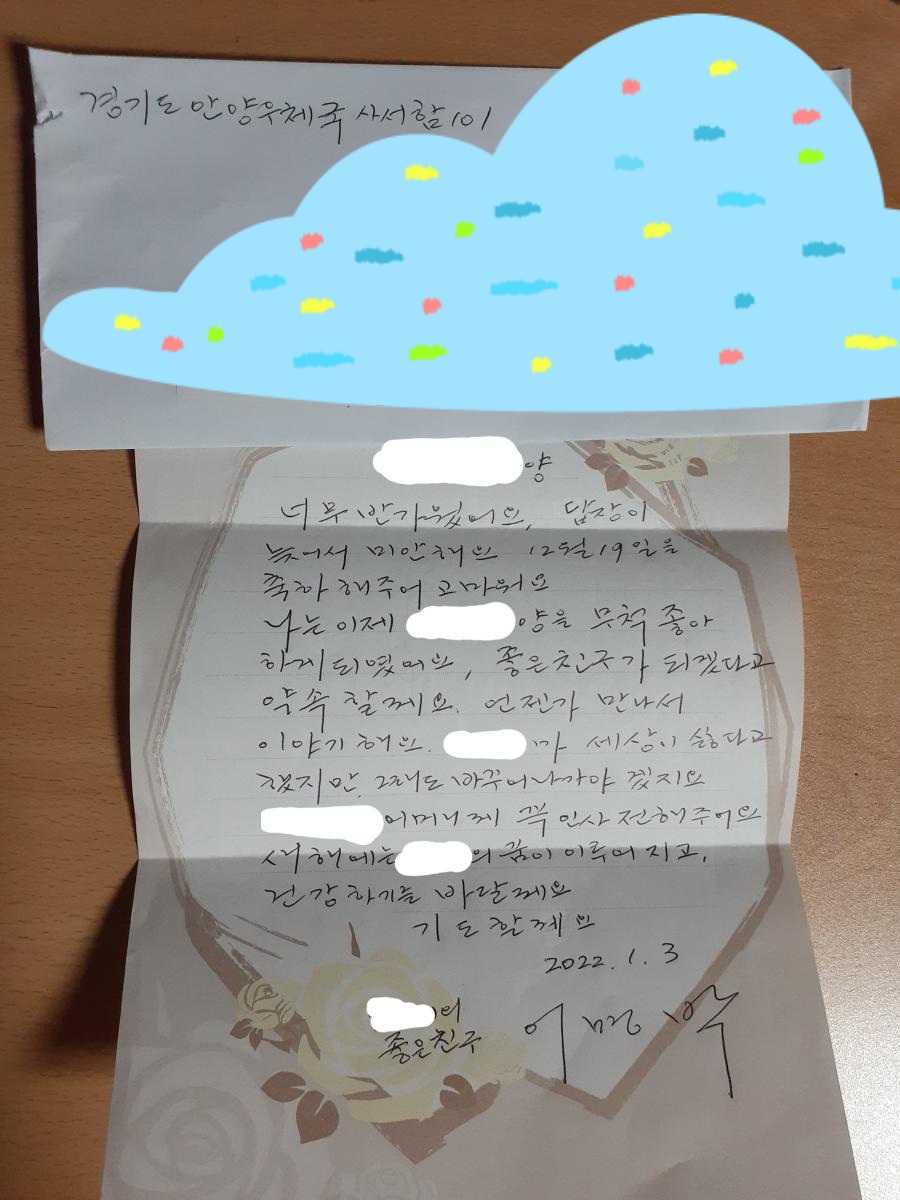 경기도 안양우체국 사서함 101
양
너무 반가웠어요, 답장이
늦어서 미안해요 12월 19일을
축하해주어 고마워요
나는 이제 양을 무척 좋아
하게 되였어요, 좋은 친구가 되겠다고
약속할께요. 언젠가 만나서
이야기해요. 가 세상이 싫다고
했지만 그래도 바꾸어나가야 겠지요
어머니께 꼭 인사 전해주어요
새해에는 의 꿈이 이루어지고,
건강하기를 바랄께요
기도할께요
2022. 1. 3
의
좋은친구 이명박